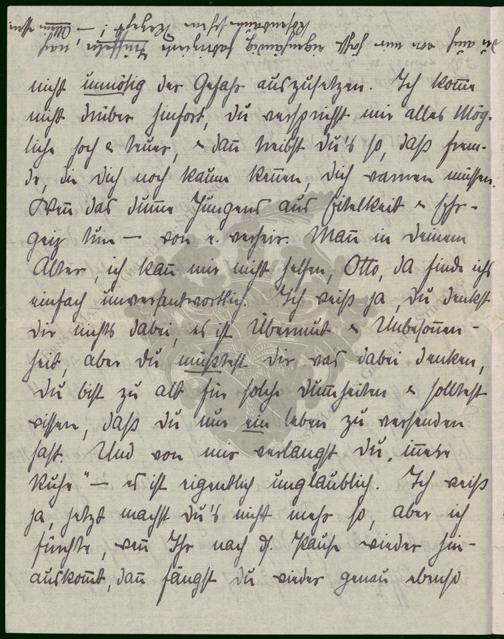 nicht unnötig der Gefahr auszusetzen. Ich kom̄e
nicht drüber hinfort, du versprichst mir alles Mög-
liche hoch & teuer, & dan̄ treibst du's so, daß frem-
de, die dich noch kaum ken̄en, dich warnen müssen.
Wen̄ das dum̄e Jungens aus Eitelkeit & Ehr-
geiz tun — von e. verheir. Man̄ in deinem
Alter, ich kan̄ mir nicht helfen, Otto, da finde ich's
einfach unverantwortlich. Ich weiß ja, du denkst
dir nichts dabei, es ist Übermut & Unbesonnen-
heit, aber du müßtest dir was dabei denken,
du bist zu alt für solche Dum̄heiten & solltest
wissen, daß du nur ein Leben zu versenden
hast. Und von mir verlangst du „in̄ere
Ruhe" — es ist eigentlich unglaublich. Ich weiß
ja, jetzt machst du's nicht mehr so, aber ich
fürchte, wen̄ Ihr nach d. Pause wieder hin-
auskom̄t, dan̄ fängst du wieder genau ebenso